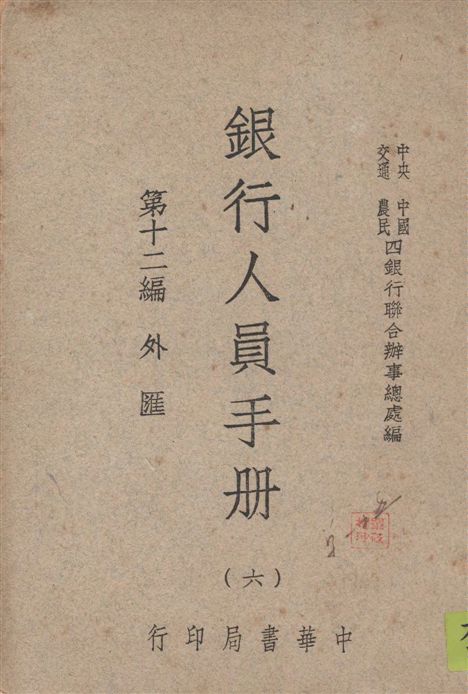 中央 中國
交通 農民
四銀行聯合辦事總處編
銀行人員手册
(六)
第十二編 外匯
中華書局印行